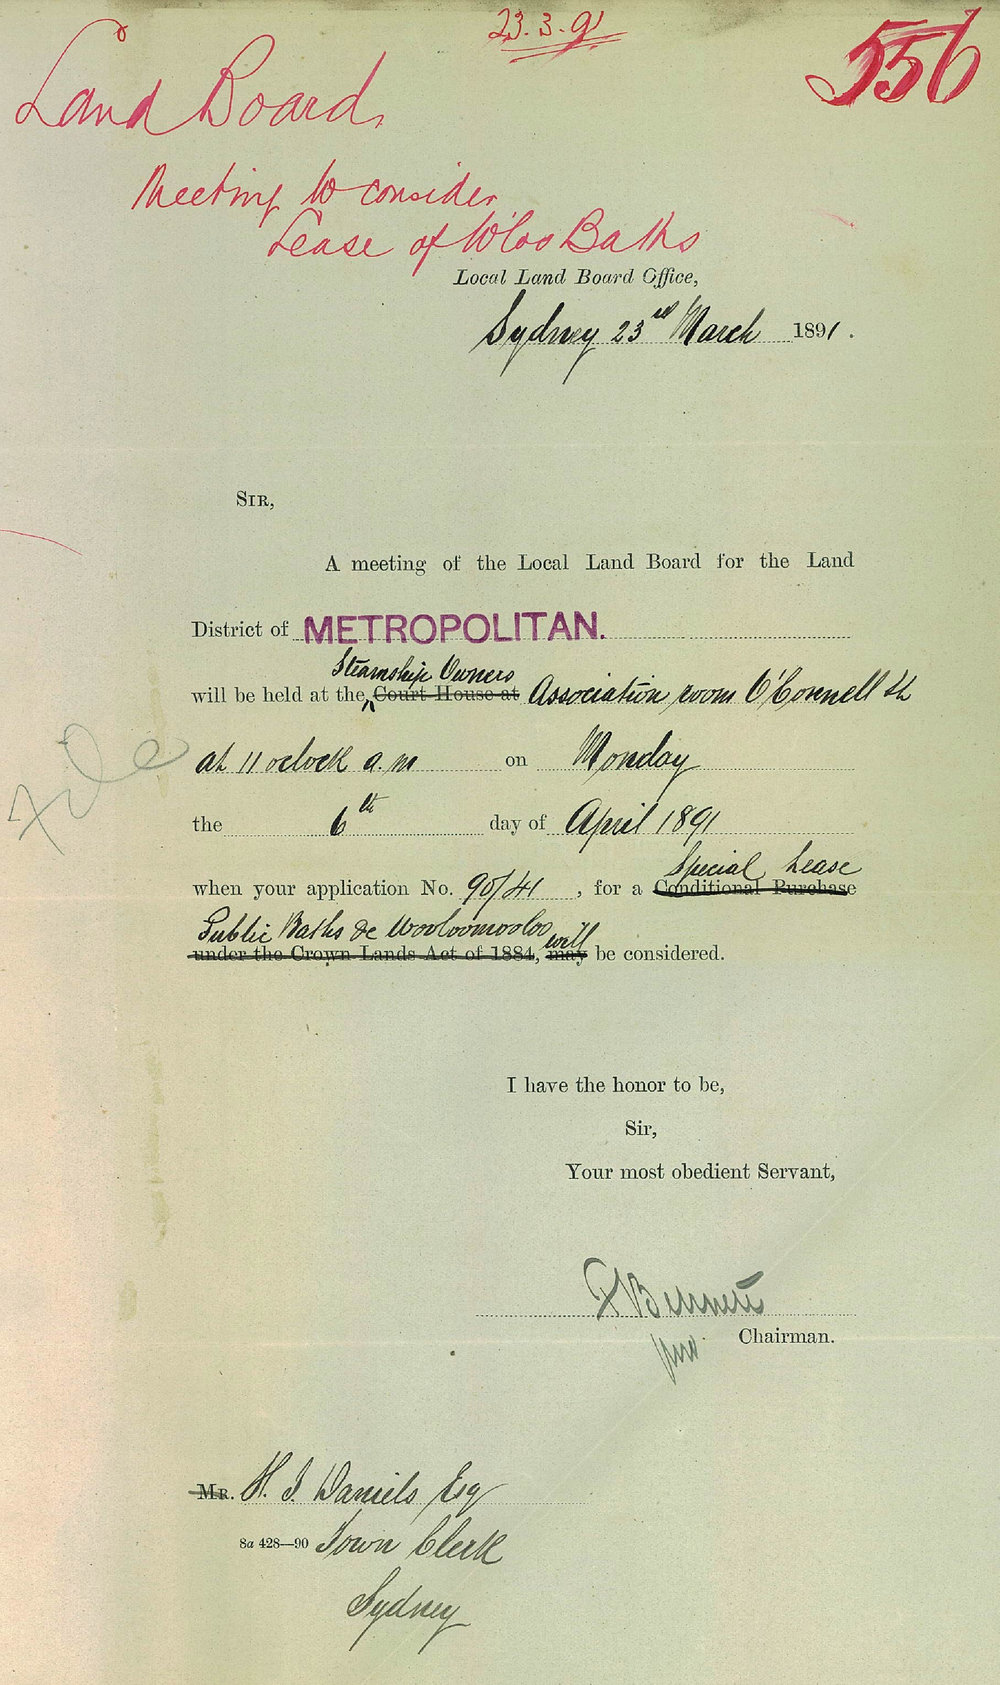 23.3.91
556
Land Board
Meeting to consider
Lease of W'loo Baths
Local Land Board Office,
Sydney 23rd March 1891.
SIR,
A meeting of the Local Land Board for the Land
District of METROPOLITAN.
Steamship Owners
will be held at the Court House at Association room O'Connell St
at 11 oclock a.m on Monday
the 6th day of April 1891
Special Lease
when your application No. 90/41, for a Conditional Purchase
Public Baths &c Wooloomooloo will
under the Crown Lands Act of 1884, may be considered.
I have the honor to be,
Sir,
Your most obedient Servant,
F Bennett
Chairman.
MR. H. J. Daniels Esq
8a 428—90 Town Clerk
Sydney